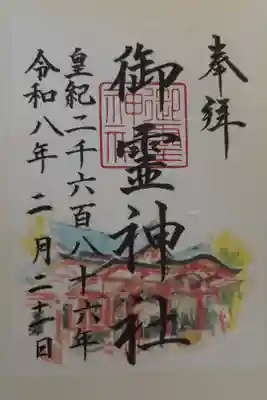 奉拝
御霊神社
皇紀二千六百八十六年
令和八年二月二十日